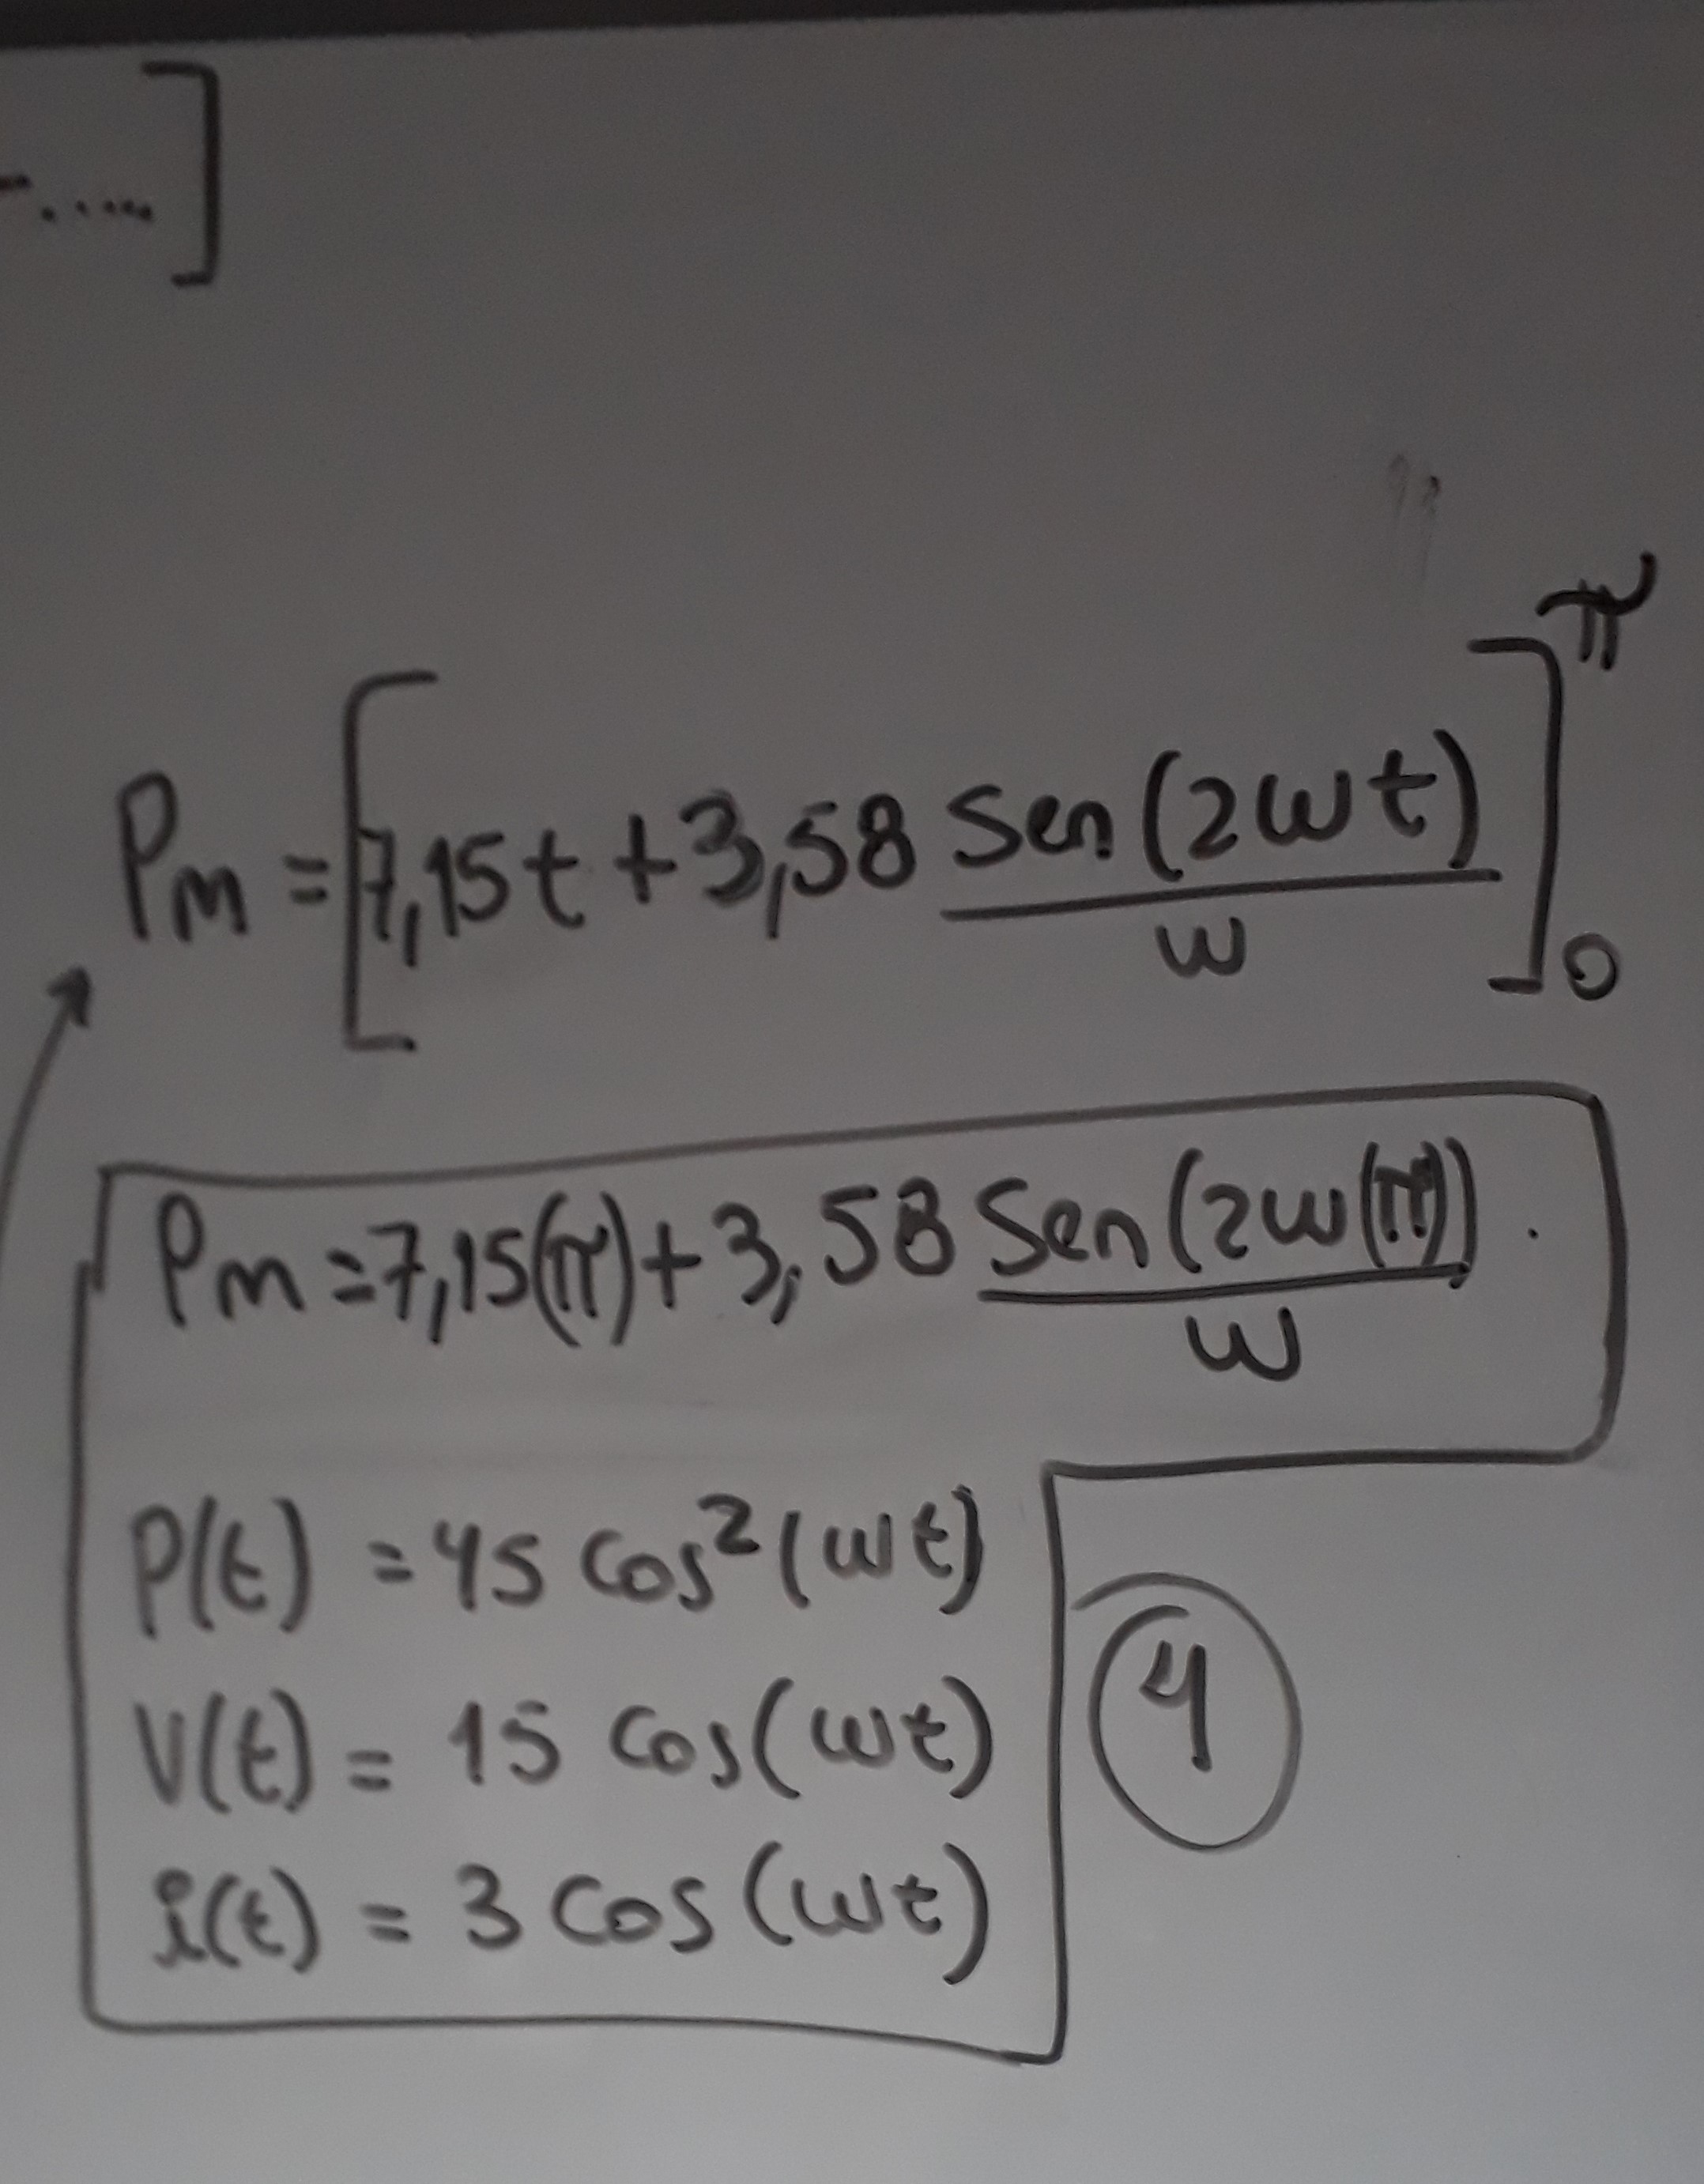 .....]
Pm = [7,15t + 3,58 Sen(2wt)/w]₀^π
Pm = 7,15(π) + 3,58 Sen(2w(π))/w .
P(t) = 45 Cos²(wt)
V(t) = 15 Cos(wt)
i(t) = 3 Cos(wt)
4